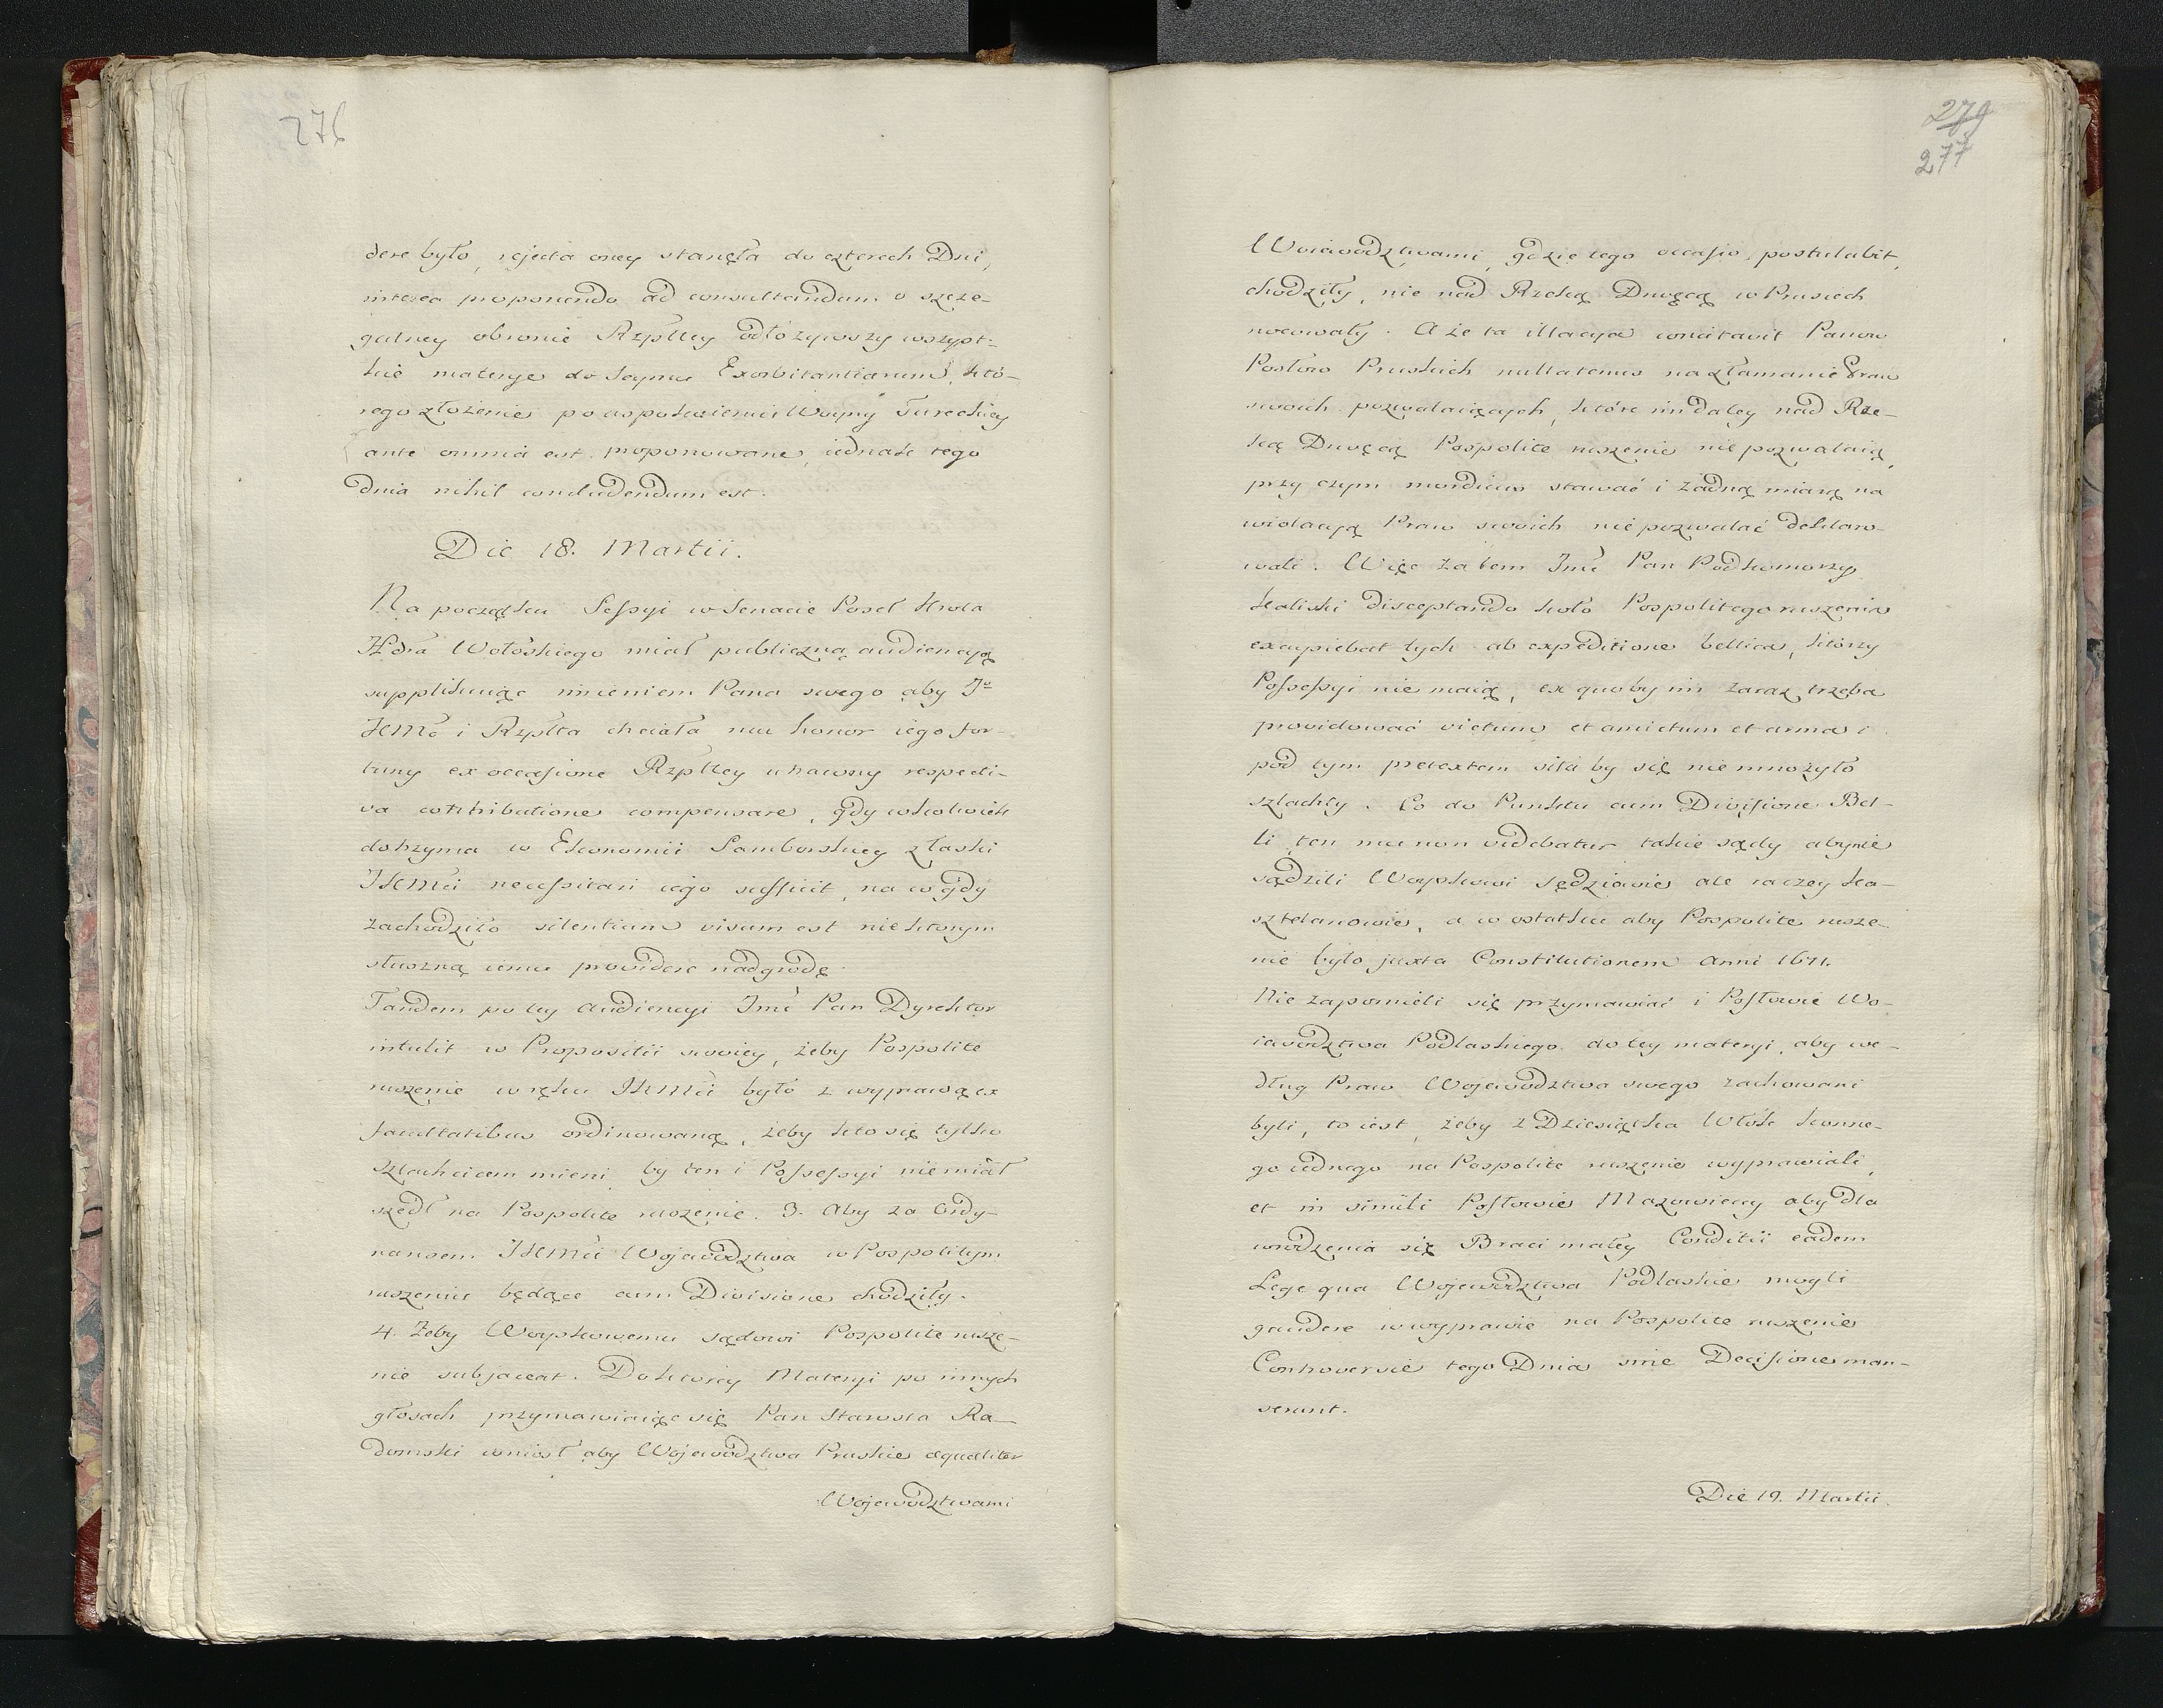 276
dere było, rejecta oney stanęła do czterech Dni,
interea proponendo ad consultandum o szcze-
gulney obronie Rzpltey odłożywszy wszyst-
kie materye do Seymu Exorbitantiarum, któ-
rego złożenie po uspokoieniu Woyny Tureckiey
ante omnia est proponowane, iednak tego
Dnia nihil concludendum est.
Die 18. Martii.
Na początku Sessyi w Senacie Poseł
Hdra Wołoskiego miał publiczną audiencyą
supplikuiąc imieniem Pana swego aby Jo
KMć i Rzplta chciała mu honor iego for-
tuny ex occasione Rzpltey uhawny respecti-
va contributione compensare, gdy cokolwiek
dotrzyma w Ekonomii Samborskiey z łaski
JKMci necessitati iego sufficit, na co gdy
zachodziło silentium visum est niektorym
słuszną iemu providere nadgrodę.
Tandem po tey Audiencyi Jmć Pan Dyrektor
intulit w Propositii swoiey, żeby Pospolite
ruszenie w ręku JKMci było z wyprawą ex
facultatibus ordinowaną, żeby kto się tylko
szlachcicem mieni, by ten i Possessyi nie miał
szedł na Pospolite ruszenie. 3. Aby za Ordy-
nansem JKMci Województwa w Pospolitym
ruszeniu będące cum Divisione chodziły.
4. Żeby Woyskowemu sądowi Pospolite rusze-
nie subjaceat. Do ktorey Materyi po innych
głosach przymawiaiąc się Pan Starosta Ra-
domski wniosł aby Województwa Pruskie aequaliter
Województwami
279
277
Woiewodztwami, gdzie tego occasio postulabit,
chodziły, nie nad Rzeką Drwęcą w Prusiech
nocowały. A że ta illacya concitavit Panow
Posłow Pruskich nullatenus na złamanie Praw
swoich pozwalaiących, które im daley nad Rze-
ką Drwęcą Pospolite ruszenie nie pozwalaią,
przy czym mordicus stawać i żadną miarą na
wiolacyą Praw swoich nie pozwalać deklaro-
wali. Więc zatem Jmć Pan Podkomorzy
Kaliski disceptando koło Pospolitego ruszenia
excypiebat tych ab expeditione bellica, którzy
Possessyi nie maią, ex quo by im zaraz trzeba
prowidować victum et amictum et arma i
pod tym pretextem siła by się nie mnożyło
szlachty. Co do Punktu cum Divisione Bel-
li ten mu non videbatur takie sądy aby nie
sądzili Woyskowi Sędziowie ale raczey Ka-
sztelanowie, a w ostatku aby Pospolite rusze-
nie było juxta Constitutionem Anni 1671.
Nie zapomieli się przymawiać i Posłowie Wo-
iewodztwa Podlaskiego do tey materyi, aby we-
dług Praw Województwa swego zachowani
byli, to iest, żeby z Dziesiątka Włók konne-
go iednego na Pospolite ruszenie wyprawiali,
et in simili Posłowie Mazowieccy aby dla
urodzenia się Braci małey Conditii eadem
Lege qua Województwa Podlaskie mogli
gaudere w wyprawie na Pospolite ruszenie
Controversie tego Dnia sine Decisione man-
serunt.
Die 19. Martii.